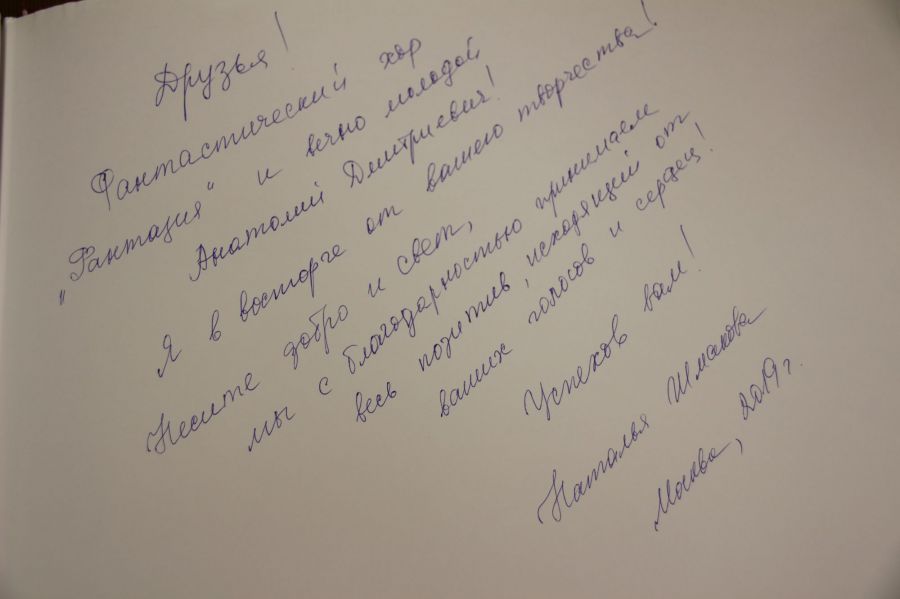 Друзья!
Фантастический хор
"Фантазия" и вечно молодой
Анатолий Дмитриевич!
Я в восторге от вашего творчества!
Несите добро и свет,
мы с благодарностью принимаем
весь позитив, исходящий от
ваших голосов и сердец!
Успехов вам!
Наталья Шмакова
Москва, 2019г.